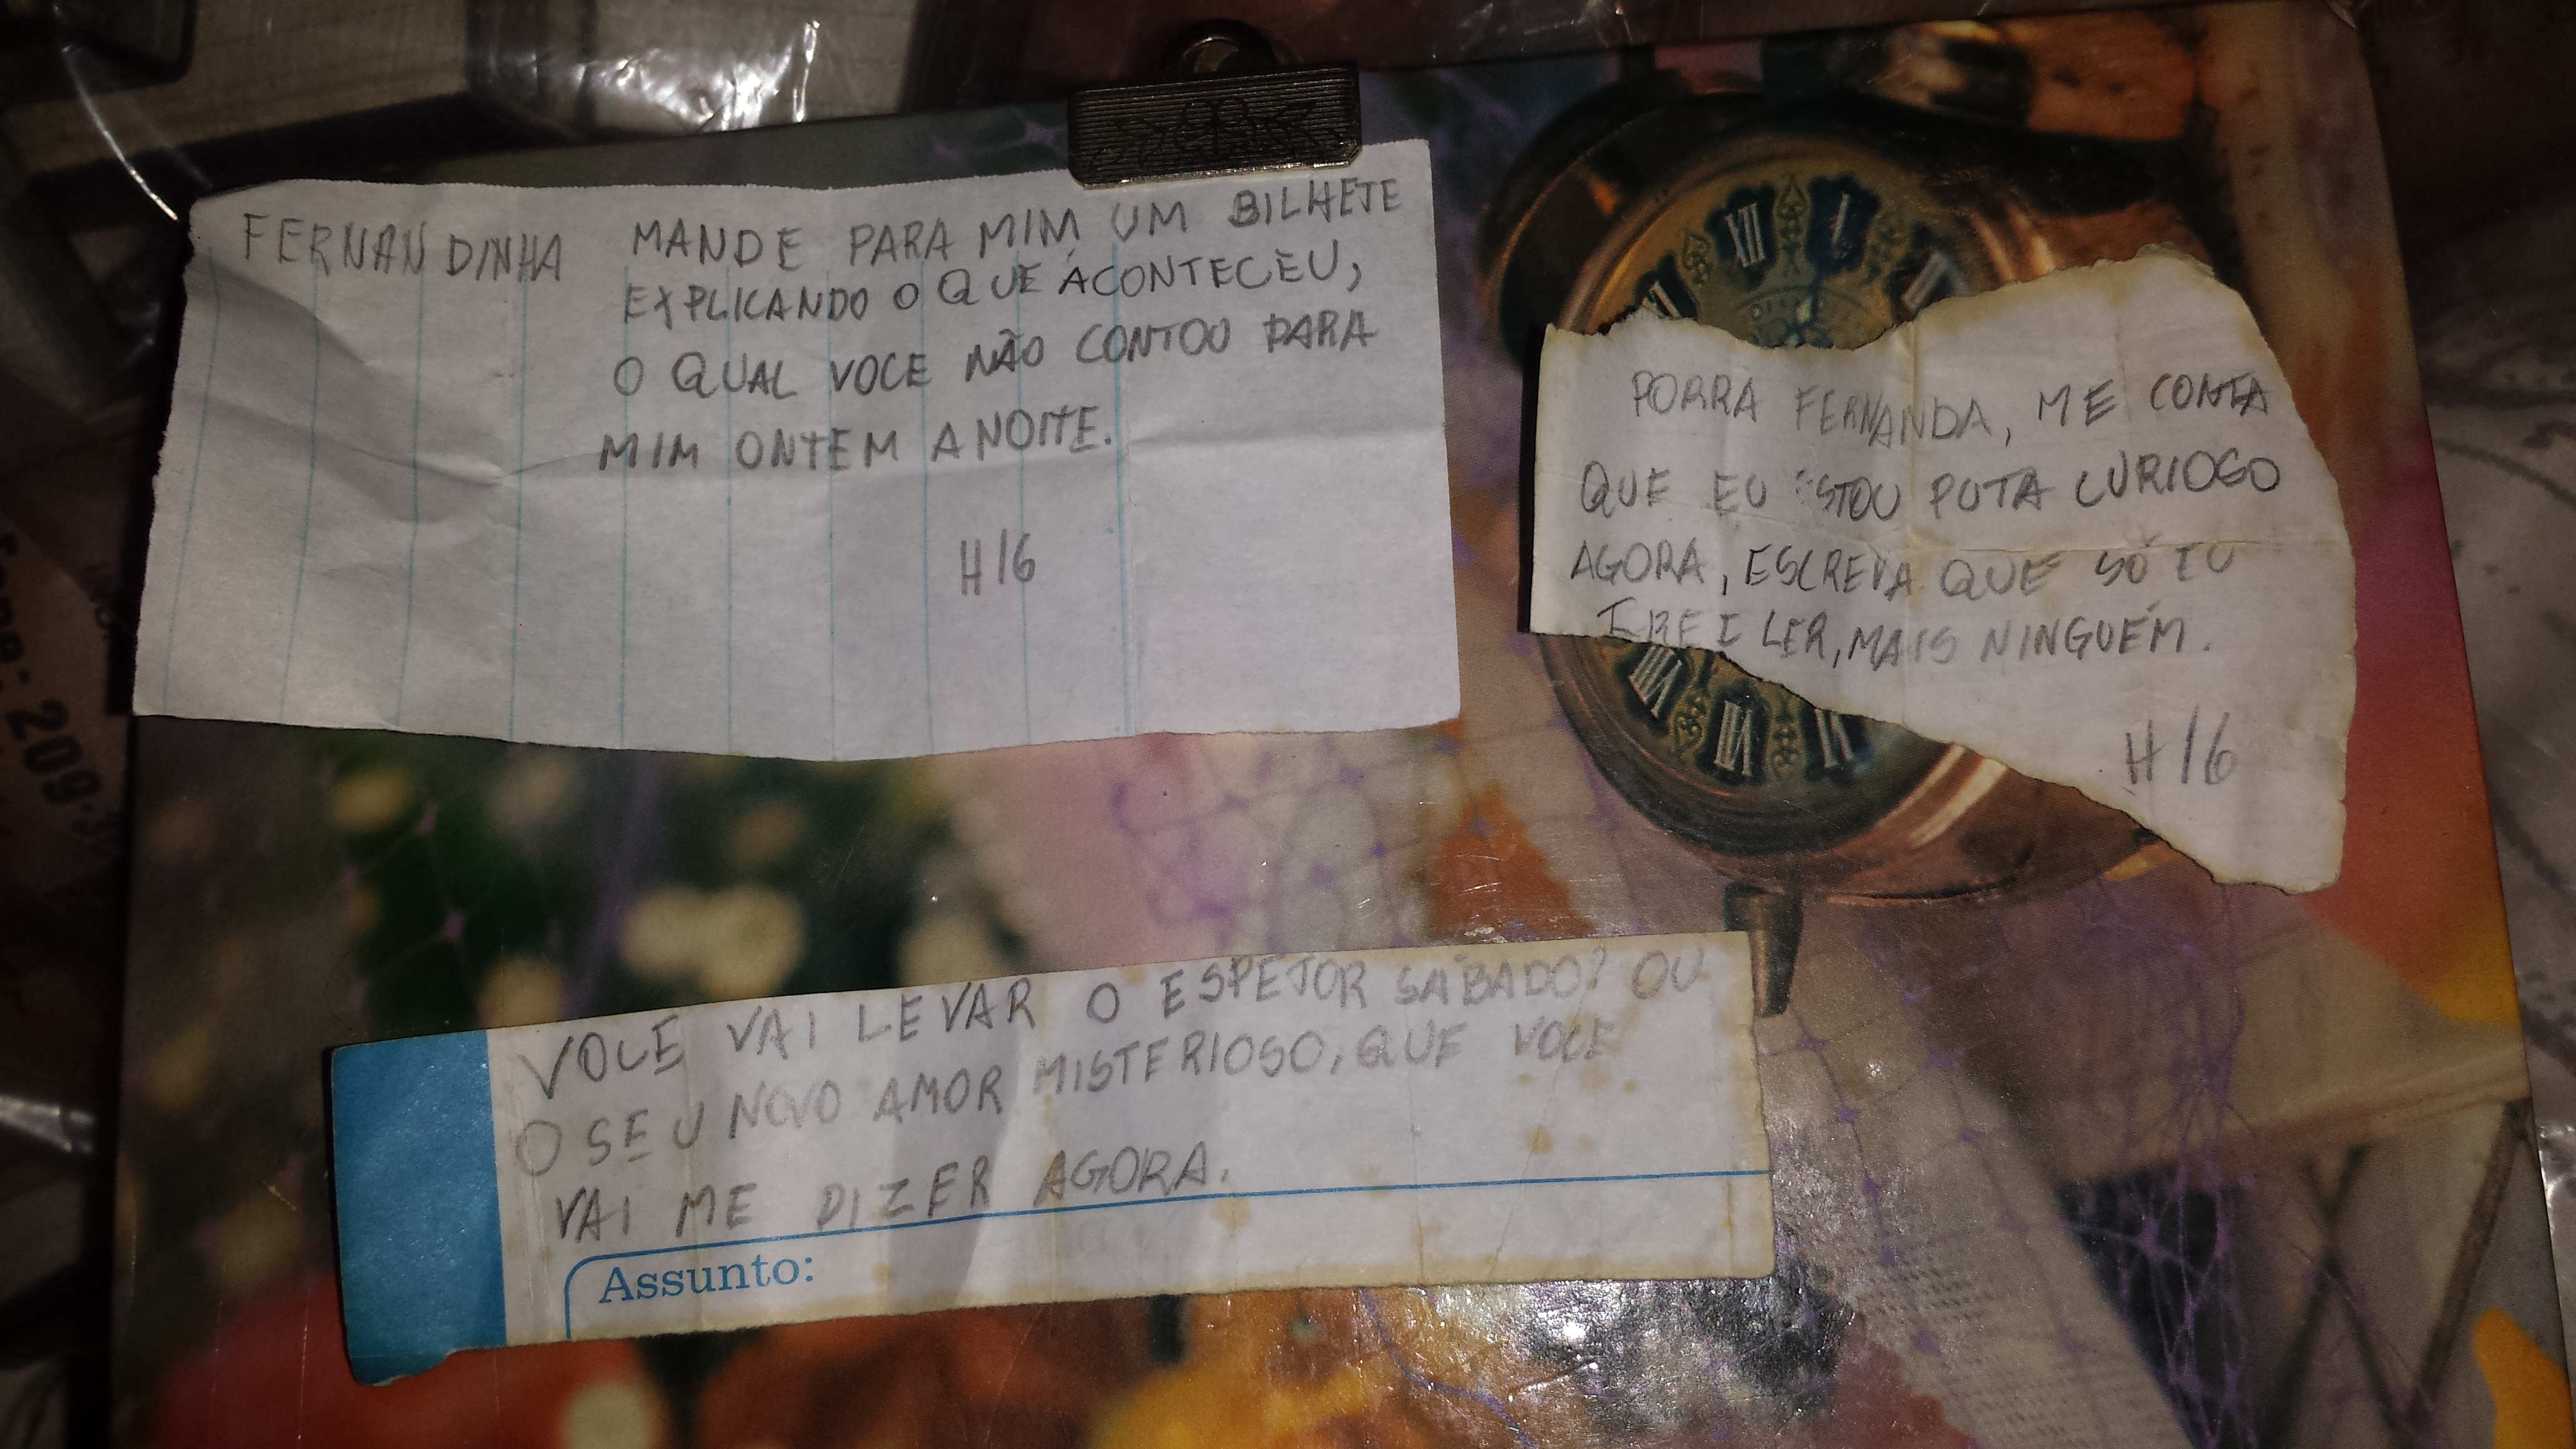 FERNANDINHA MANDE PARA MIM UM BILHETE
EXPLICANDO O QUE ACONTECEU,
O QUAL VOCE NÃO CONTOU PARA
MIM ONTEM A NOITE.
H/6
PORRA FERNANDA, ME CONTA
QUE EU ESTOU PUTA CURIOSO
AGORA, ESCREVA QUE SÓ EU
IREI LER, MAIS NINGUÉM.
H/6
VOCE VAI LEVAR O ESPETOR SÁBADO? OU
O SEU NOVO AMOR MISTERIOSO, QUE VOCE
VAI ME DIZER AGORA.
Assunto:
209